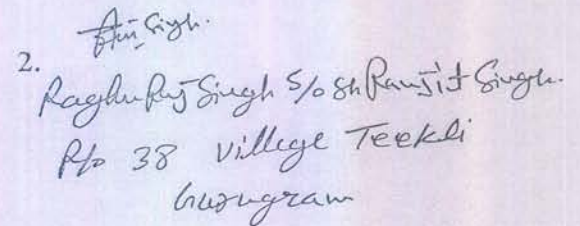 Singh.
2.
Raghu Raj Singh S/o Sh Ranjit Singh.
R/o 38 Village Teekli
Gurugram